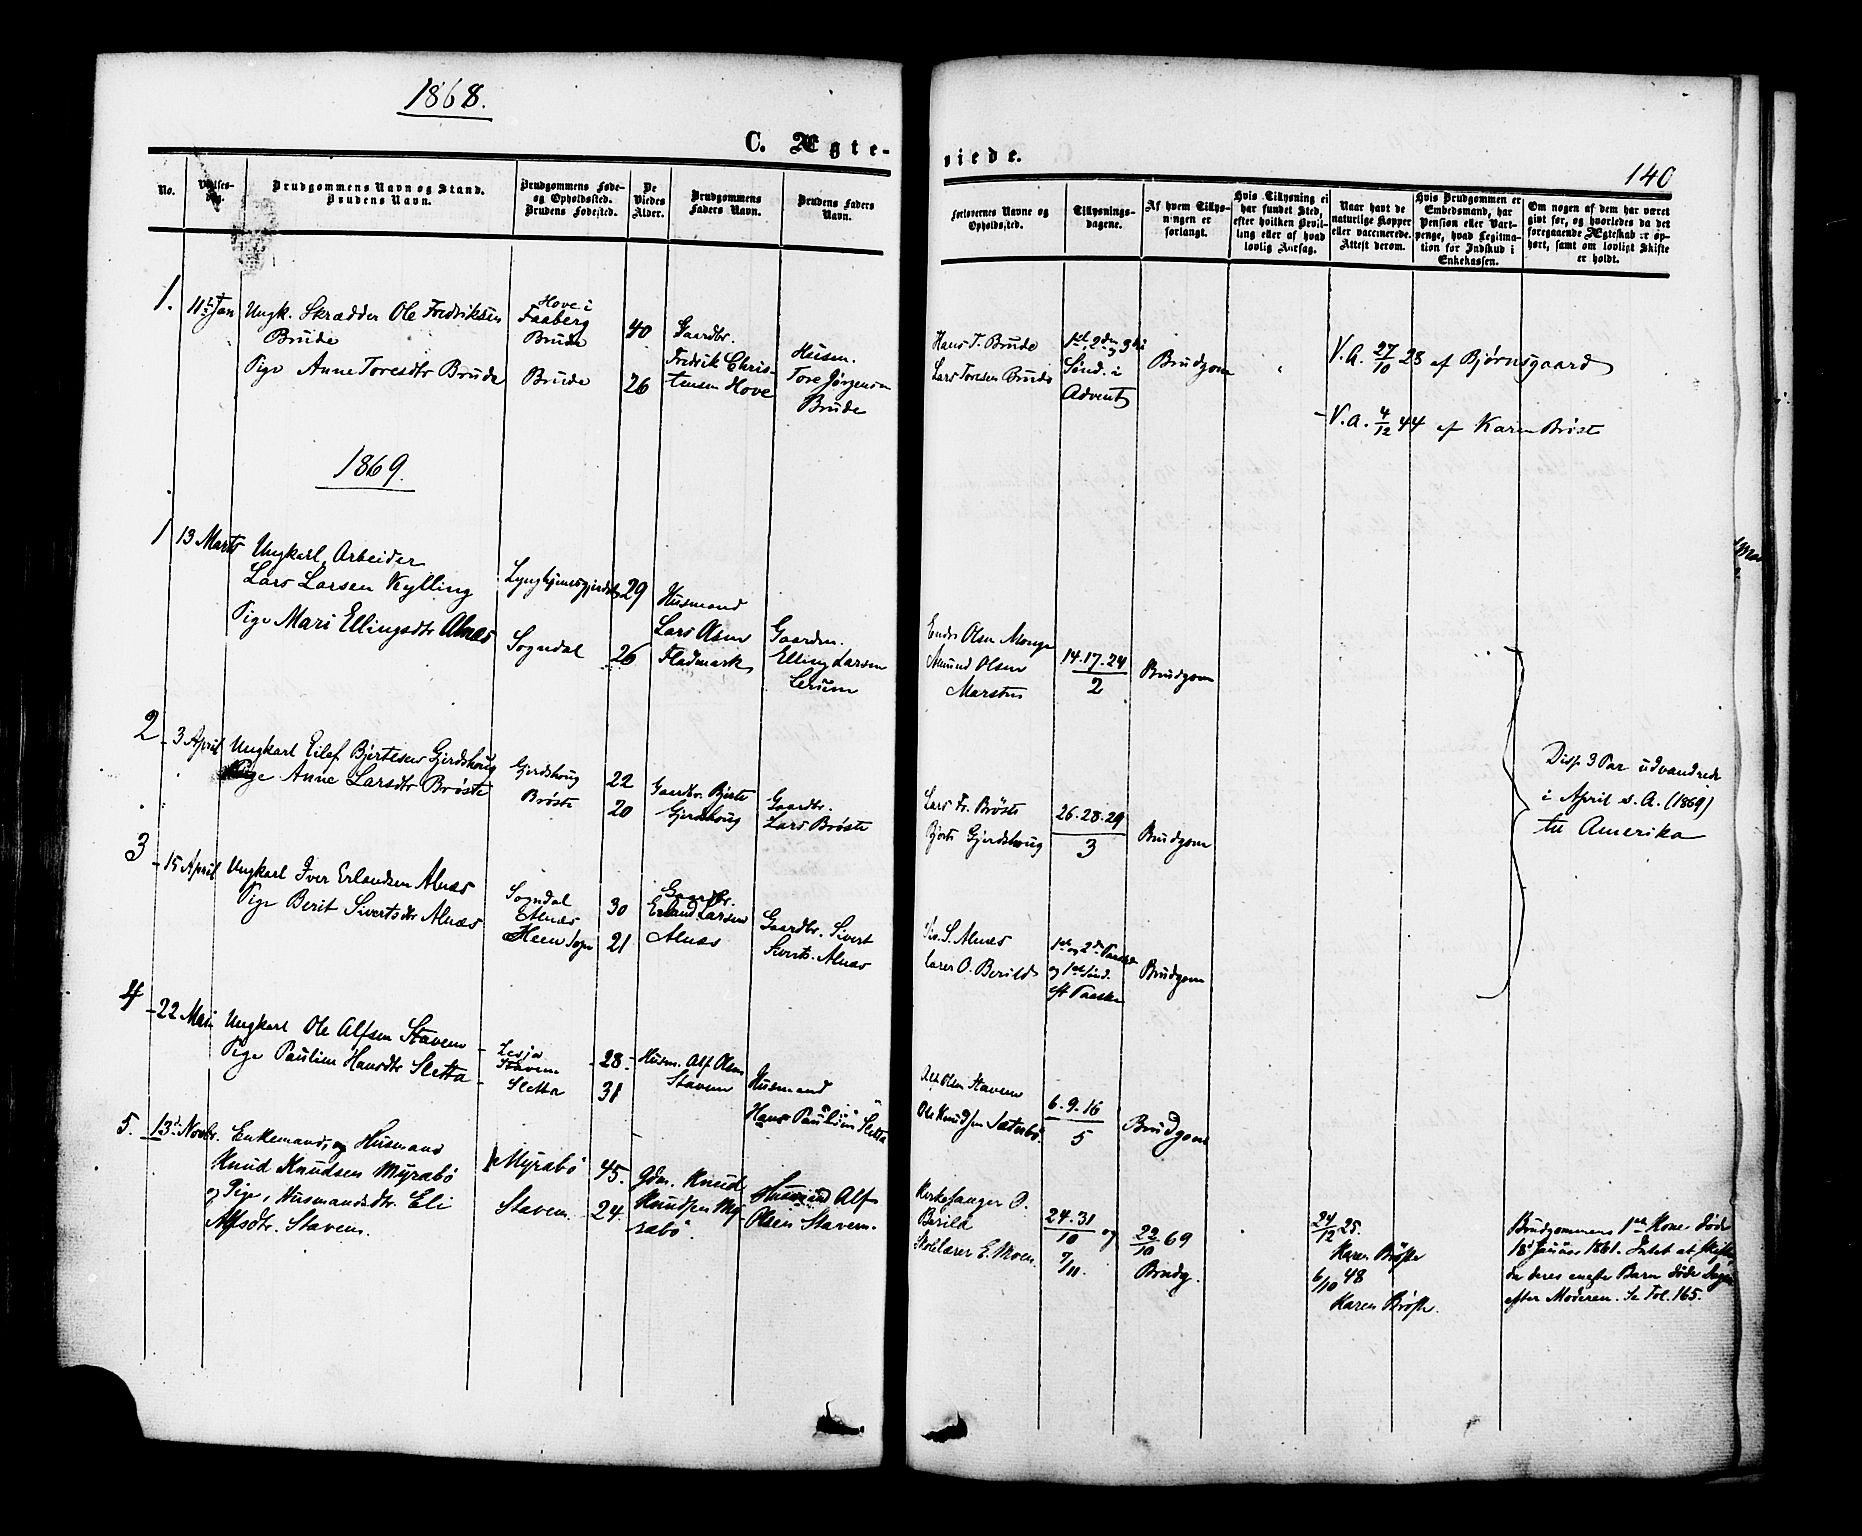 1868.
C. Ægte-
viede.
140
No.
Vielses-
dag.
Brudgommens Navn og Stand.
Brudens Navn.
Brudgommens Føde-
og Opholdssted.
Brudens Fødested.
De
Viedes
Alder.
Brudgommens
Faders Navn.
Brudens Faders
Navn.
Forlovernes Navne og
Opholdssted.
Tillysnings-
dagene.
Af hvem Tillys-
ningen er
forlangt.
Hvis Tillysning ei
har fundet Sted,
efter hvilken Bevil-
ling eller af hvad
lovlig Aarsag.
Naar havt de
naturlige Kopper
eller vaccinerede.
Attest derom.
Hvis Brudgommen er
Embedsmand, har
Pension eller Vart-
penge, hvad Legitima-
tion for Indskud i
Enkekassen.
Om nogen af dem har været
gift før, og hvorledes da det
foregaaende Ægteskab er op-
hørt, samt om lovligt Skifte
er holdt.
1.
11te Jan
Ungk. Skrædder Ole Fredriksen
Brude
Pige Anne Toresdtr Brude
Hove i
Faaberg
Brude
Brude
40
26
Gaardbr.
Fredrik Chris-
tensen Hove
Husm.
Tore Jørgensen
Brude
Hans T. Brude
Lars Toresen Brude
1st, 2den og 3die
Sønd. i
Advent
Brudgom
V.A. 27/10 28 af Bjørnsgaard
V.A. 4/12 44 af Karen Brøste
1869.
1
13 Marts
Ungkarl Arbeider
Lars Larsen Kylling
Pige Mari Ellingsdtr Alnæs
Sogndal
29
26
Husmand
Lars Olsen
Fladmark
Gaardm.
Elling Larsen
Lerum
Endre Olsen Monge
Amund Olsen
Marsten
14.17.24
2
Brudgom
2
3 April
Ungkarl Eilef Bjertesen Gjerdshoug
Pige Anne Larsdtr Brøste
Gjerdshoug
Brøste
22
20
Gaardbr. Bjerte
Gjerdshoug
Gaardbr.
Lars Brøste
Lars Fr. Brøste
Bjerte Gjerdshoug
26.28.29
3
Brudgom
Disse 3 Par udvandrede
i April s. A. (1869)
til Amerika
3
15 April
Ungkarl Iver Erlandsen Alnæs
Pige Berit Sivertsdtr Alnæs
Sogndal
Alnæs
Heen Sogn
30
21
Gaardbr.
Erland Larsen
Alnæs
Gaardbr. Sivert
Siverts. Alnæs
Siv. S. Alnæs
Lars O. Berild
1ste og 2den Paaskd.
og 1ste Sønd.
eft Paaske
Brudgom
4
22 Mai
Ungkarl Ole Alfsen Stavem
Pige Pauline Hansdtr Sletta
Lesja
Stavem
Sletta
28
31
Husm. Alf Olsen
Stavem
Husmand
Hans Paulsen Sletta
Alf Olsen Stavem
Ole Knudsen Sæterbø
6.9.16
5
Brudgom
5.
13de Novbr.
Enkemand og Husmand
Knud Knudsen Myrabø
og Pige, Husmandsdtr. Eli
Alfsdtr. Stavem.
Myrabø
Stavem.
45.
24.
Gdm. Knud
Knudsen My-
rabø.
Husmand Alf
Olsen Stavem.
Kirkesanger O.
Berild
Skolelærer E. Moen.
24.31
10 og
7/11.
22/10 69
Brudg.
24/12 25.
Karen Brøste
6/10 48
Karen Brøste.
Brudgommens 1ste Kone døde
18de Januar 1861. Intet at skifte,
da deres eneste Barn døde Dagen
efter Moderen. Se Fol. 165.